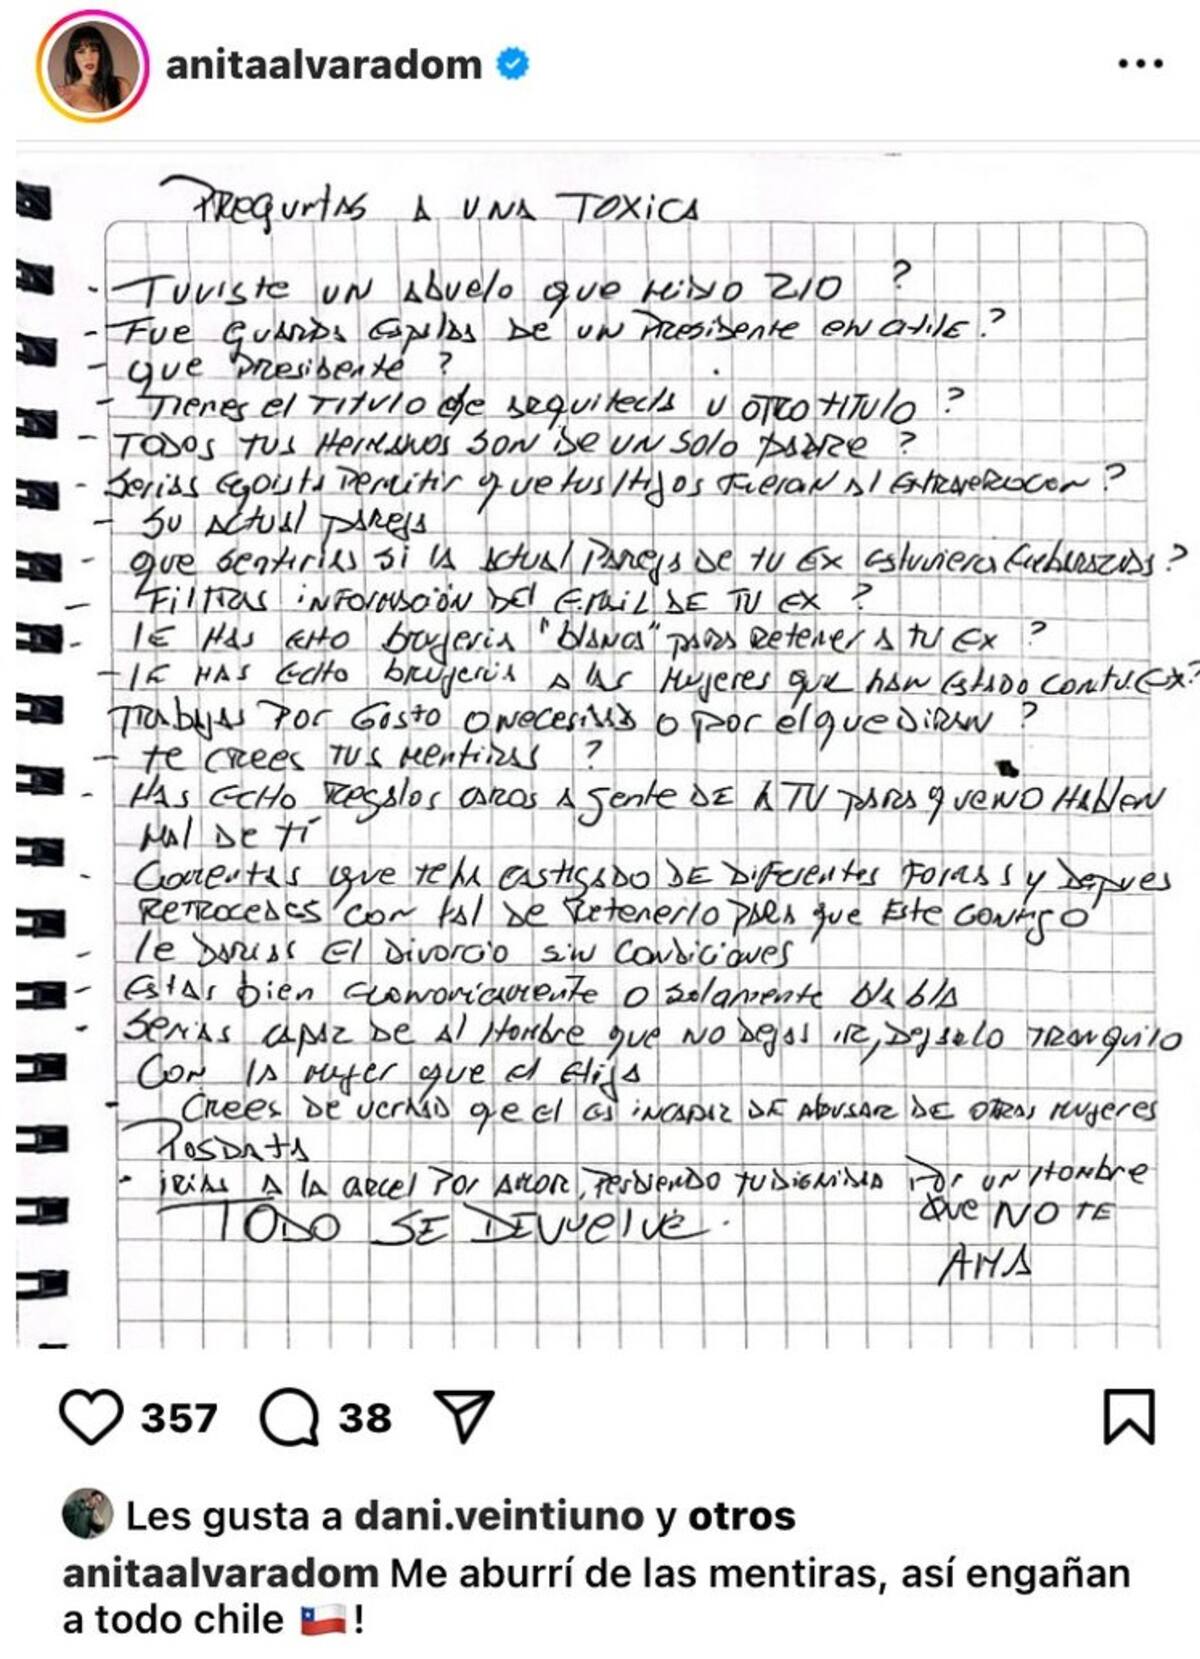 anitaalvaradom
PREGUNTAS A UNA TOXICA
- TUVISTE UN ABUELO que MIDIO 210 ?
- FUE GUARDA ESPALDAS DE UN PRESIDENTE EN CHILE ?
- que PRESIDENTE ?
- TIENES el TITULO de ARQUITECTA U OTRO TITULO ?
- TODOS TUS HERMANOS SON DE UN SOLO PADRE ?
- SERIAS EGOISTA PERMITIR que tus HIJOS FUERAN Al EXTRANJERO CON ?
- SU ACTUAL PAREJA
- que SENTIRIAS SI LA ACTUAL PAREJA DE TU EX estuviera EMBARAZADA ?
- FILTRAS INFORMACIÓN DEL EMAIL DE TU EX ?
- LE HAS ECHO brujeria "BLANCA" PARA RETENER A TU EX ?
- LE HAS ECHO BRUJERIA A LAS MUJERES que han ESTADO CON TU EX ?
TRABAJAS POR GUSTO O NECESIDAD O por el que DIRAN ?
- TE CREES TUS MENTIRAS ?
- HAS ECHO REGALOS CAROS A gente DE LA TV PARA que NO HABLEN
MAL DE TÍ
- Comentas que te ha CASTIGADO DE DIFERENTES FORMAS y DESPUES
RETROCEDES CON tal DE RETENERLO PARA que ESTE CONTIGO
- LE DARIAS El DIVORCIO SIN CONDICIONES
- ESTAS bien ECONOMICAMENTE O SOLAMENTE BLA BLA
- SERIAS CAPAZ DE Al HOMBRE que NO DEJAS IR, DEJARLO TRANQUILO
CON LA MUJER que el ELIJA
- CREES DE VERDAD QUE EL ES INCAPAZ DE ABUSAR DE OTRAS MUJERES
POSDATA
- IRIAS A LA CARCEL POR AMOR, PERDIENDO TU DIGNIDAD POR UN HOMBRE
QUE NO TE
AMA
TODO SE DEVUELVE.
357 38
Les gusta a dani.veintiuno y otros
anitaalvaradom Me aburrí de las mentiras, así engañan
a todo chile 🇨🇱!